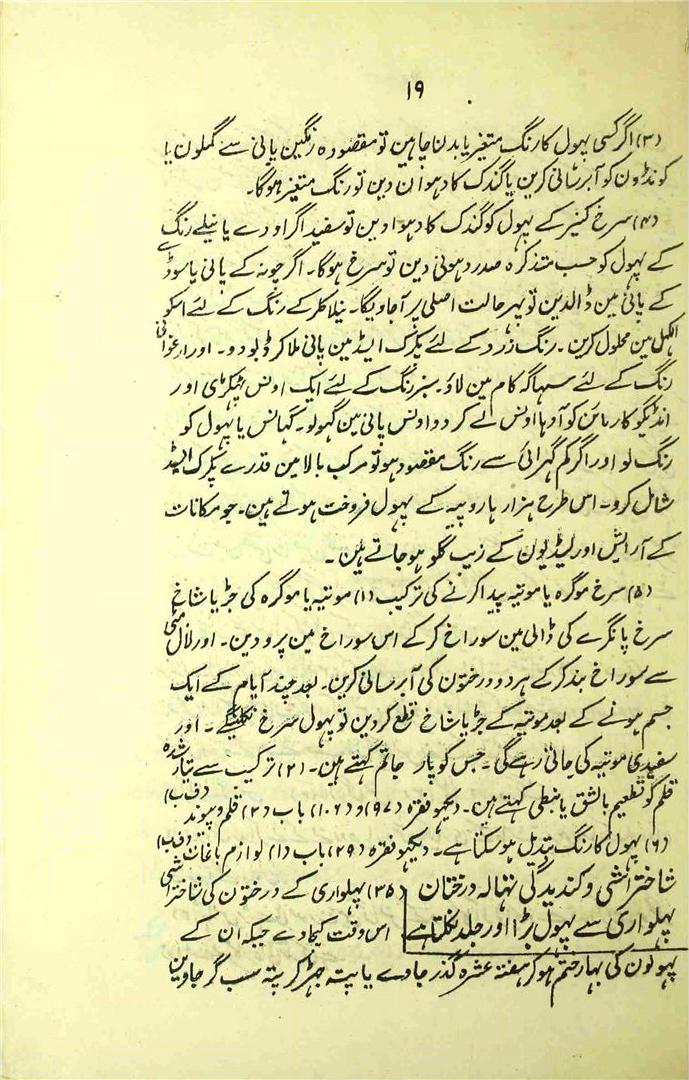 ۱۹
(۳) اگر کسی پہول کا رنگ متغیر یا بدلنا چاہین تو مقصودہ رنگین پانی سے گملون یا
کونڈون کو آبرسانی کرین یا گندک کا دہوان دین تو رنگ متغیر ہوگا۔
(۴) سرخ کنیر کے پہول کو گندک کا دہوا دین تو سفید اگر اودے یا نیلے رنگ
کے پہول کو حسب متذکرہ صدر دہونی دین تو سرخ ہوگا۔ اگر چونہ کے پانی یا سوڈے
کے پانی مین ڈالدین تو پہر حالت اصلی پر آجاویگا۔ نیلا کلر کے رنگ کے لئے اسکو
الکہل مین محلول کرین۔ رنگ زرد کے لئے پکرک ایسڈ مین پانی ملا کر ڈبو دو۔ اور ارغوانی
رنگ کے لئے سہاگہ کام مین لاؤ۔ سبز رنگ کے لئے ایک اونس پہٹکڑی اور
انڈیگو کارمائن کو آدہا اونس لے کر دو اونس پانی مین گہولو۔ گہانس یا پہول کو
رنگ لو اور اگر کم گہرائی سے رنگ مقصود ہو تو مرکب بالا مین قدرے پکرک ایسڈ
شامل کرو۔ اس طرح ہزارہا روپیہ کے پہول فروخت ہوتے ہین۔ جو مکانات
کے آرایش اور لیڈیون کے زیب گلو ہو جاتے ہین۔
(۵) سرخ موگرہ یا موتیہ پیدا کرنے کی ترکیب (۱) موتیہ یا موگرہ کی جڑ یا شاخ
سرخ پانگرے کی ڈالی مین سوراخ کرکے اس سوراخ مین پرو دین۔ اور لال مٹی
سے سوراخ بند کر کے ہر دو درختون کی آبرسانی کرین۔ بعد چند آیام کے ایک
جسم ہونے کے بعد موتیہ کے جڑ یا شاخ قطع کر دین تو پہول سرخ نکلینگے۔ اور
سفیدی موتیہ کی جاتی رہے گی۔ جس کو پار جاتم کہتے ہین۔ (۲) ترکیب سے تیار شدہ
قلم کو تطعیم بالشق یا نبطی کہتے ہین۔ دیکہو فقرہ (۹۷) و (۱۰۶) باب (۲) قلم و پیوند (ف ب)
(۶) پہول کا رنگ تبدیل ہو سکتا ہے۔ دیکہو فقرہ (۲۹) باب (۱) لوازم باغات (ف ب)
شاختراشی و کندیدگی نہالہ درختان
پہلواری سے پہول بڑا اور جلد نکلتا ہے
(۳۵) پہلواری کے درختون کی شاختراشی
اس وقت کیجاوے جبکہ ان کے
پہولون کی بہار ختم ہوکر ہفتہ عشرہ گذر جاوے یا پتہ جہڑ کر پتہ سب گر جاوین